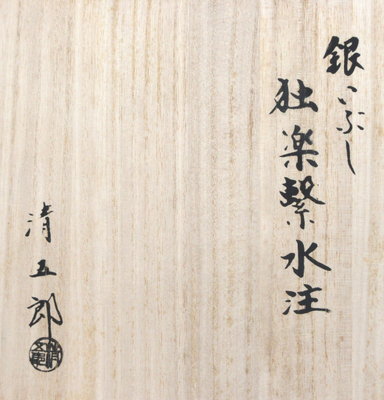 銀いぶし
独楽繋水注
清五郎